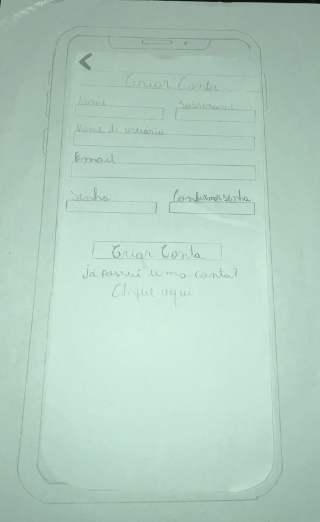 Criar Conta
Nome Sobrenome
Nome de usuário
Email
Senha Confirmar senha
Criar Conta
Já possui uma conta?
Clique aqui